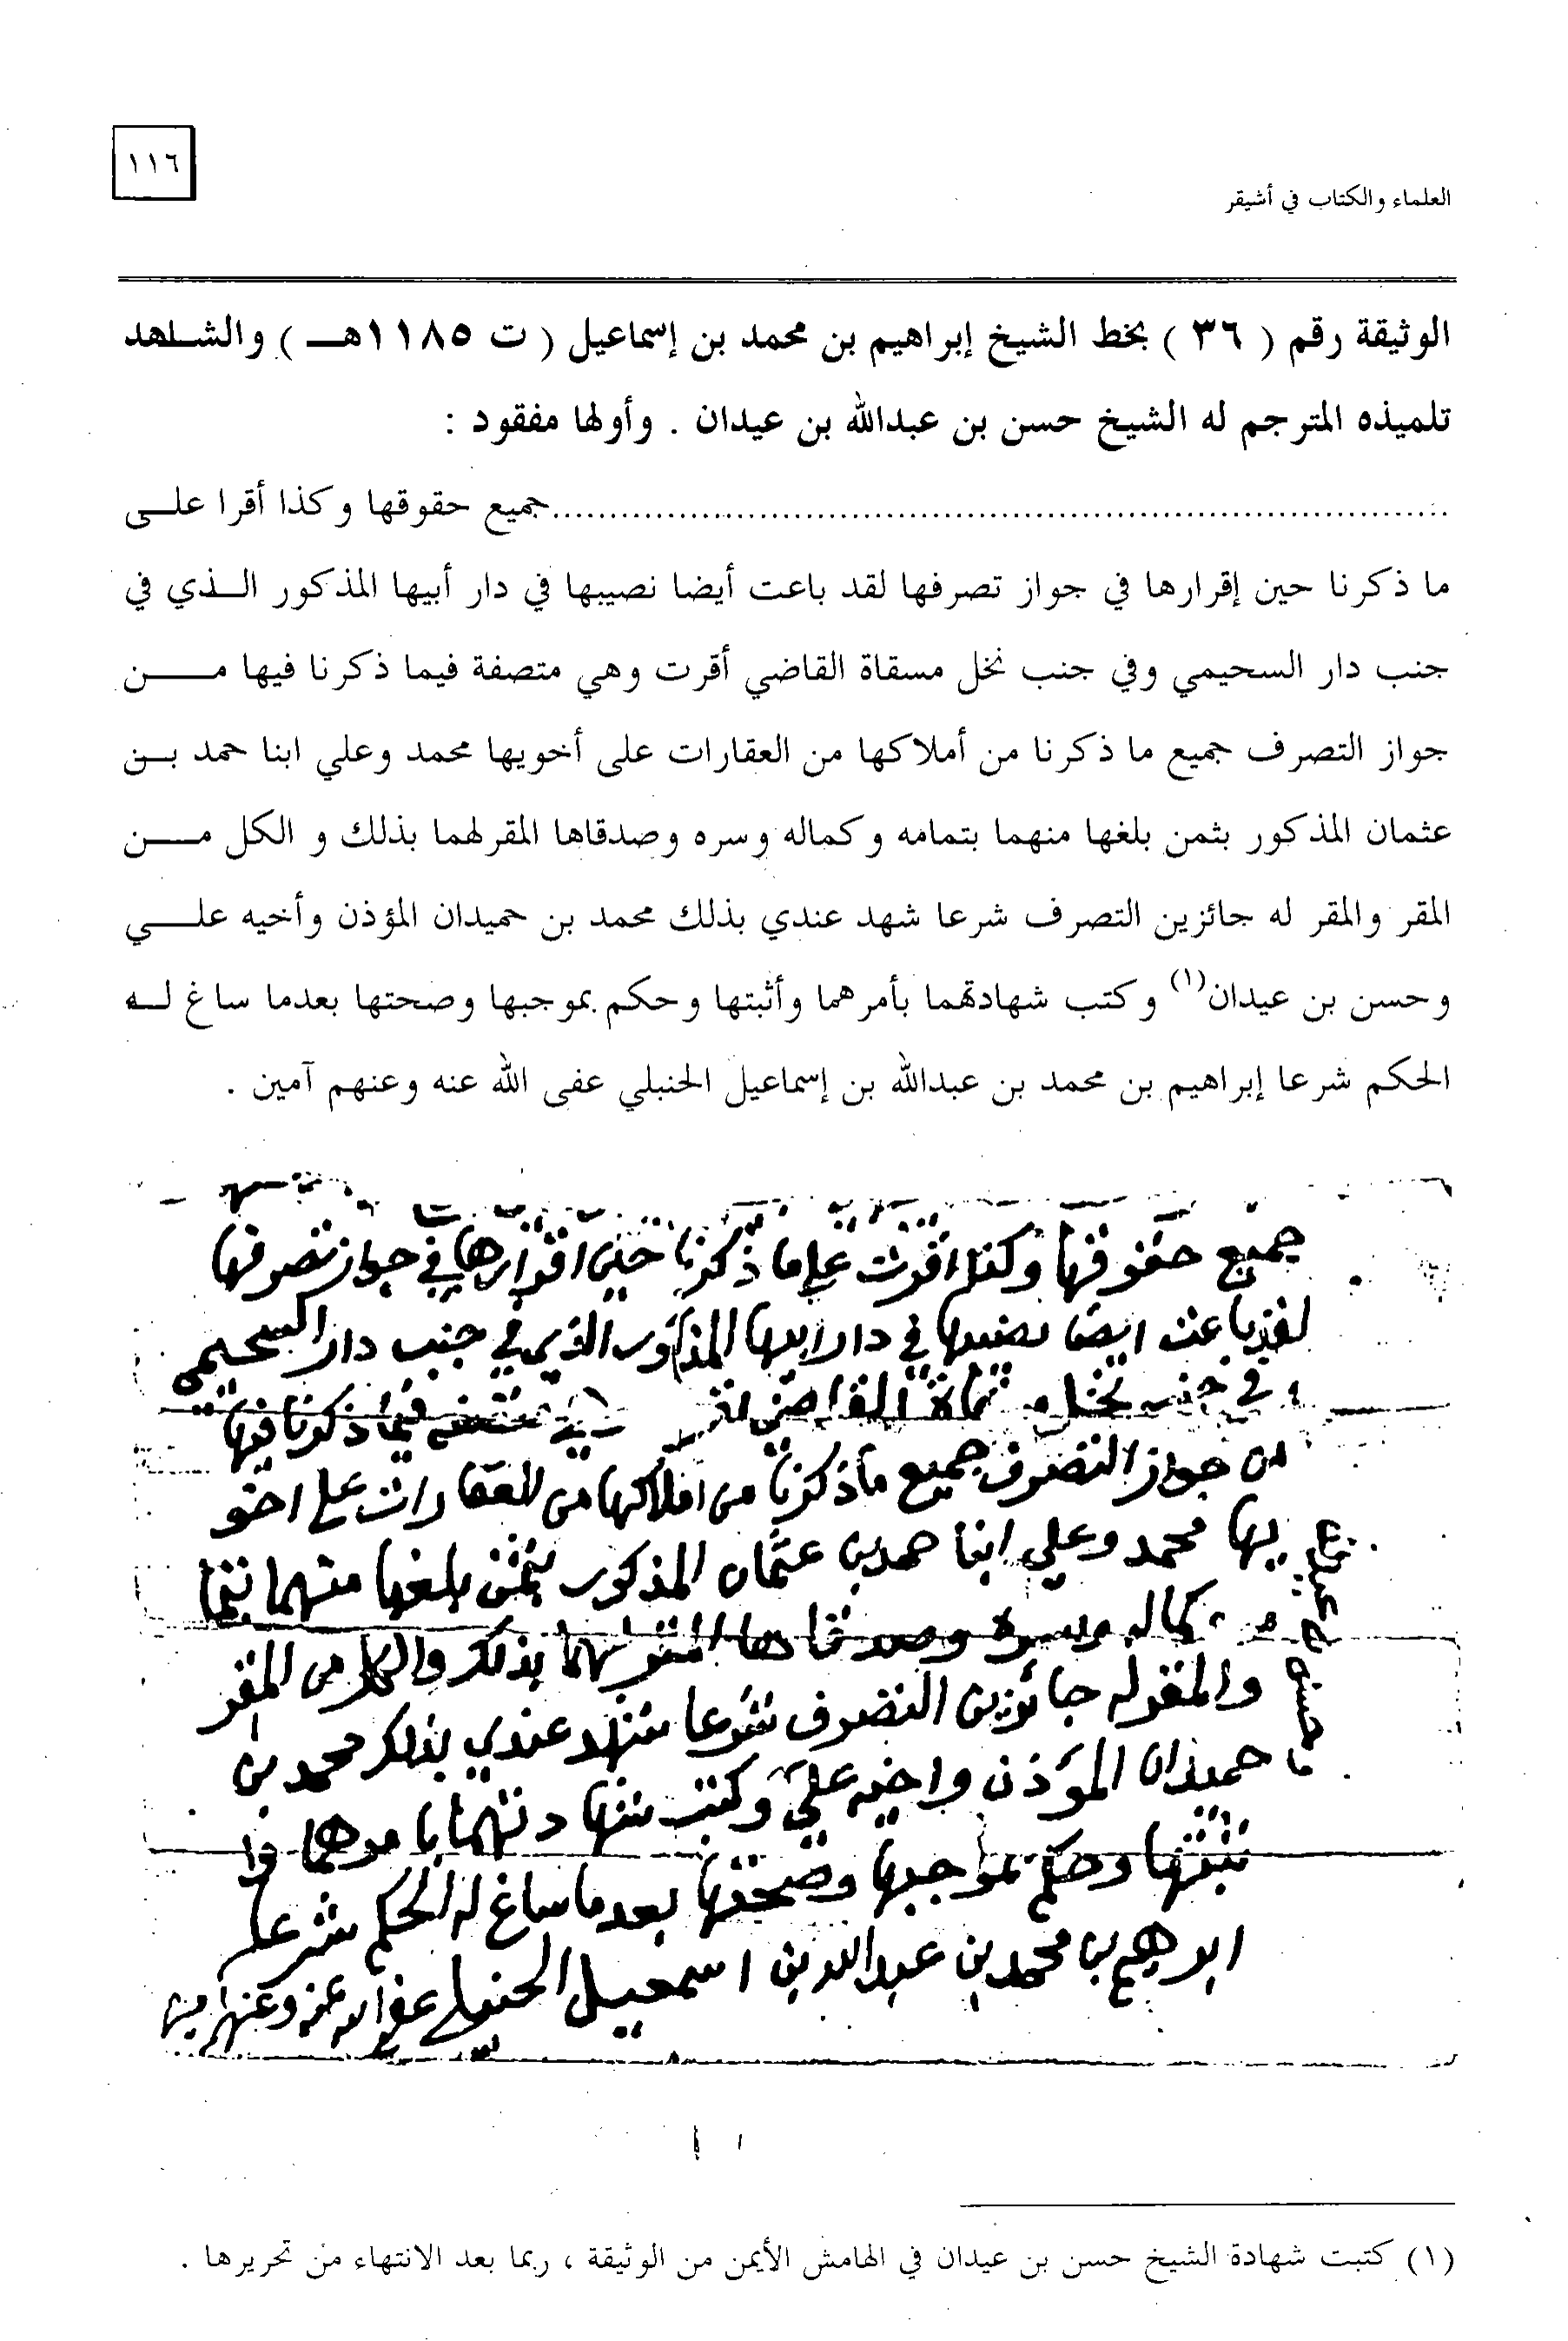 ١١٦
العلماء والكتاب في أشيقر
الوثيقة رقم ( ٣٦ ) بخط الشيخ إبراهيم بن محمد بن إسماعيل ( ت ١١٨٥هـ ) والشاهد
تلميذه المترجم له الشيخ حسن بن عبدالله بن عيدان . وأولها مفقود :
..........................................................................جميع حقوقها وكذا أقرا على
ما ذكرنا حين إقرارها في جواز تصرفها لقد باعت أيضا نصيبها في دار أبيها المذكور الذي في
جنب دار السحيمي وفي جنب نخل مسقاة القاضي أقرت وهي متصفة فيما ذكرنا فيها من
جواز التصرف جميع ما ذكرنا من أملاكها من العقارات على أخويها محمد وعلي ابنا حمد بن
عثمان المذكور بثمن بلغها منهما بتمامه وكماله وسره وصدقاها المقرلهما بذلك و الكل من
المقر والمقر له جائزين التصرف شرعا شهد عندي بذلك محمد بن حميدان المؤذن وأخيه علي
وحسن بن عيدان(١) وكتب شهادتهما بأمرهما وأثبتها وحكم بموجبها وصحتها بعدما ساغ له
الحكم شرعا إبراهيم بن محمد بن عبدالله بن إسماعيل الحنبلي عفى الله عنه وعنهم آمين .
جميع حقوقها وكذا اقرت على ما ذكرنا حين اقرارها في جواز تصرفها
لقد باعت ايضا نصيبها في دار ابيها المذكور الذي في جنب دار السحيمي
وفي جنب نخل القاضي متصفه فيما ذكرنا فيها
من جواز التصرف جميع ما ذكرنا من املاكها من العقارات على اخو
يها محمد وعلي ابنا حمد بن عثمان المذكور بثمن بلغها منهما بتما
مه وكماله وسره وصدقاها المقر لهما بذلك والكل من المقر
والمقر له جائزين التصرف شرعا شهد عندي بذلك محمد بن
حميدان المؤذن واخيه علي وكتب شهادتهما بامرهما وا
ثبتها وحكم بموجبها وصحتها بعدما ساغ له الحكم شرعا
ابرهيم بن محمد بن عبدالله بن اسمعيل الحنبلي عفى الله عنه وعنهم امين
وحسن بن عيدان
(١) كتبت شهادة الشيخ حسن بن عيدان في الهامش الأيمن من الوثيقة ، ربما بعد الانتهاء من تحريرها .